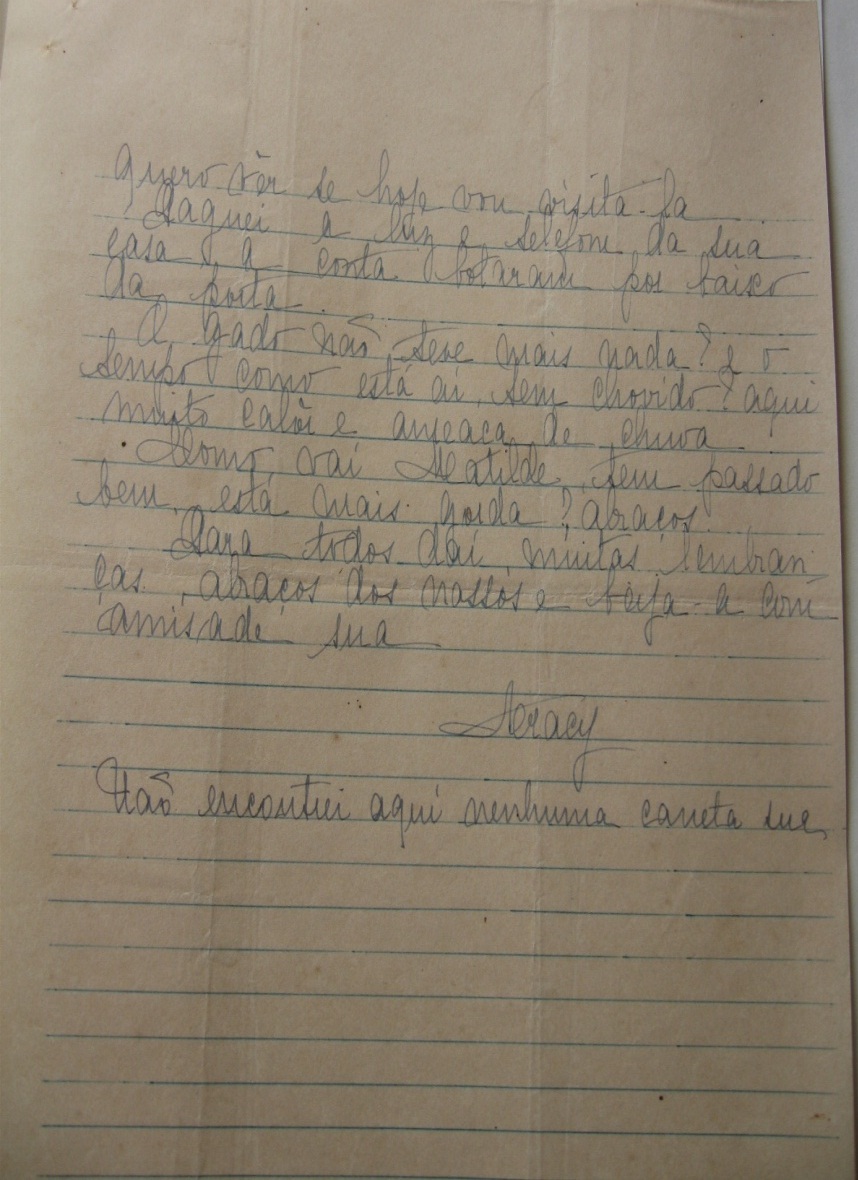 Quero vêr se hoje vou visita-la
Paguei a luz e telefone da sua
casa, a conta botaram por baixo
da porta.
O gado não teve mais nada? e o
tempo como está aí, tem chovido? aqui
muito calôr e ameaça de chuva.
Como vai Matilde, tem passado
bem, está mais gorda? abraços.
Para todos daí, muitas lembran-
ças, abraços dos nossos e beija-a com
amisade sua
Aracy
Não encontrei aqui nenhuma caneta sua